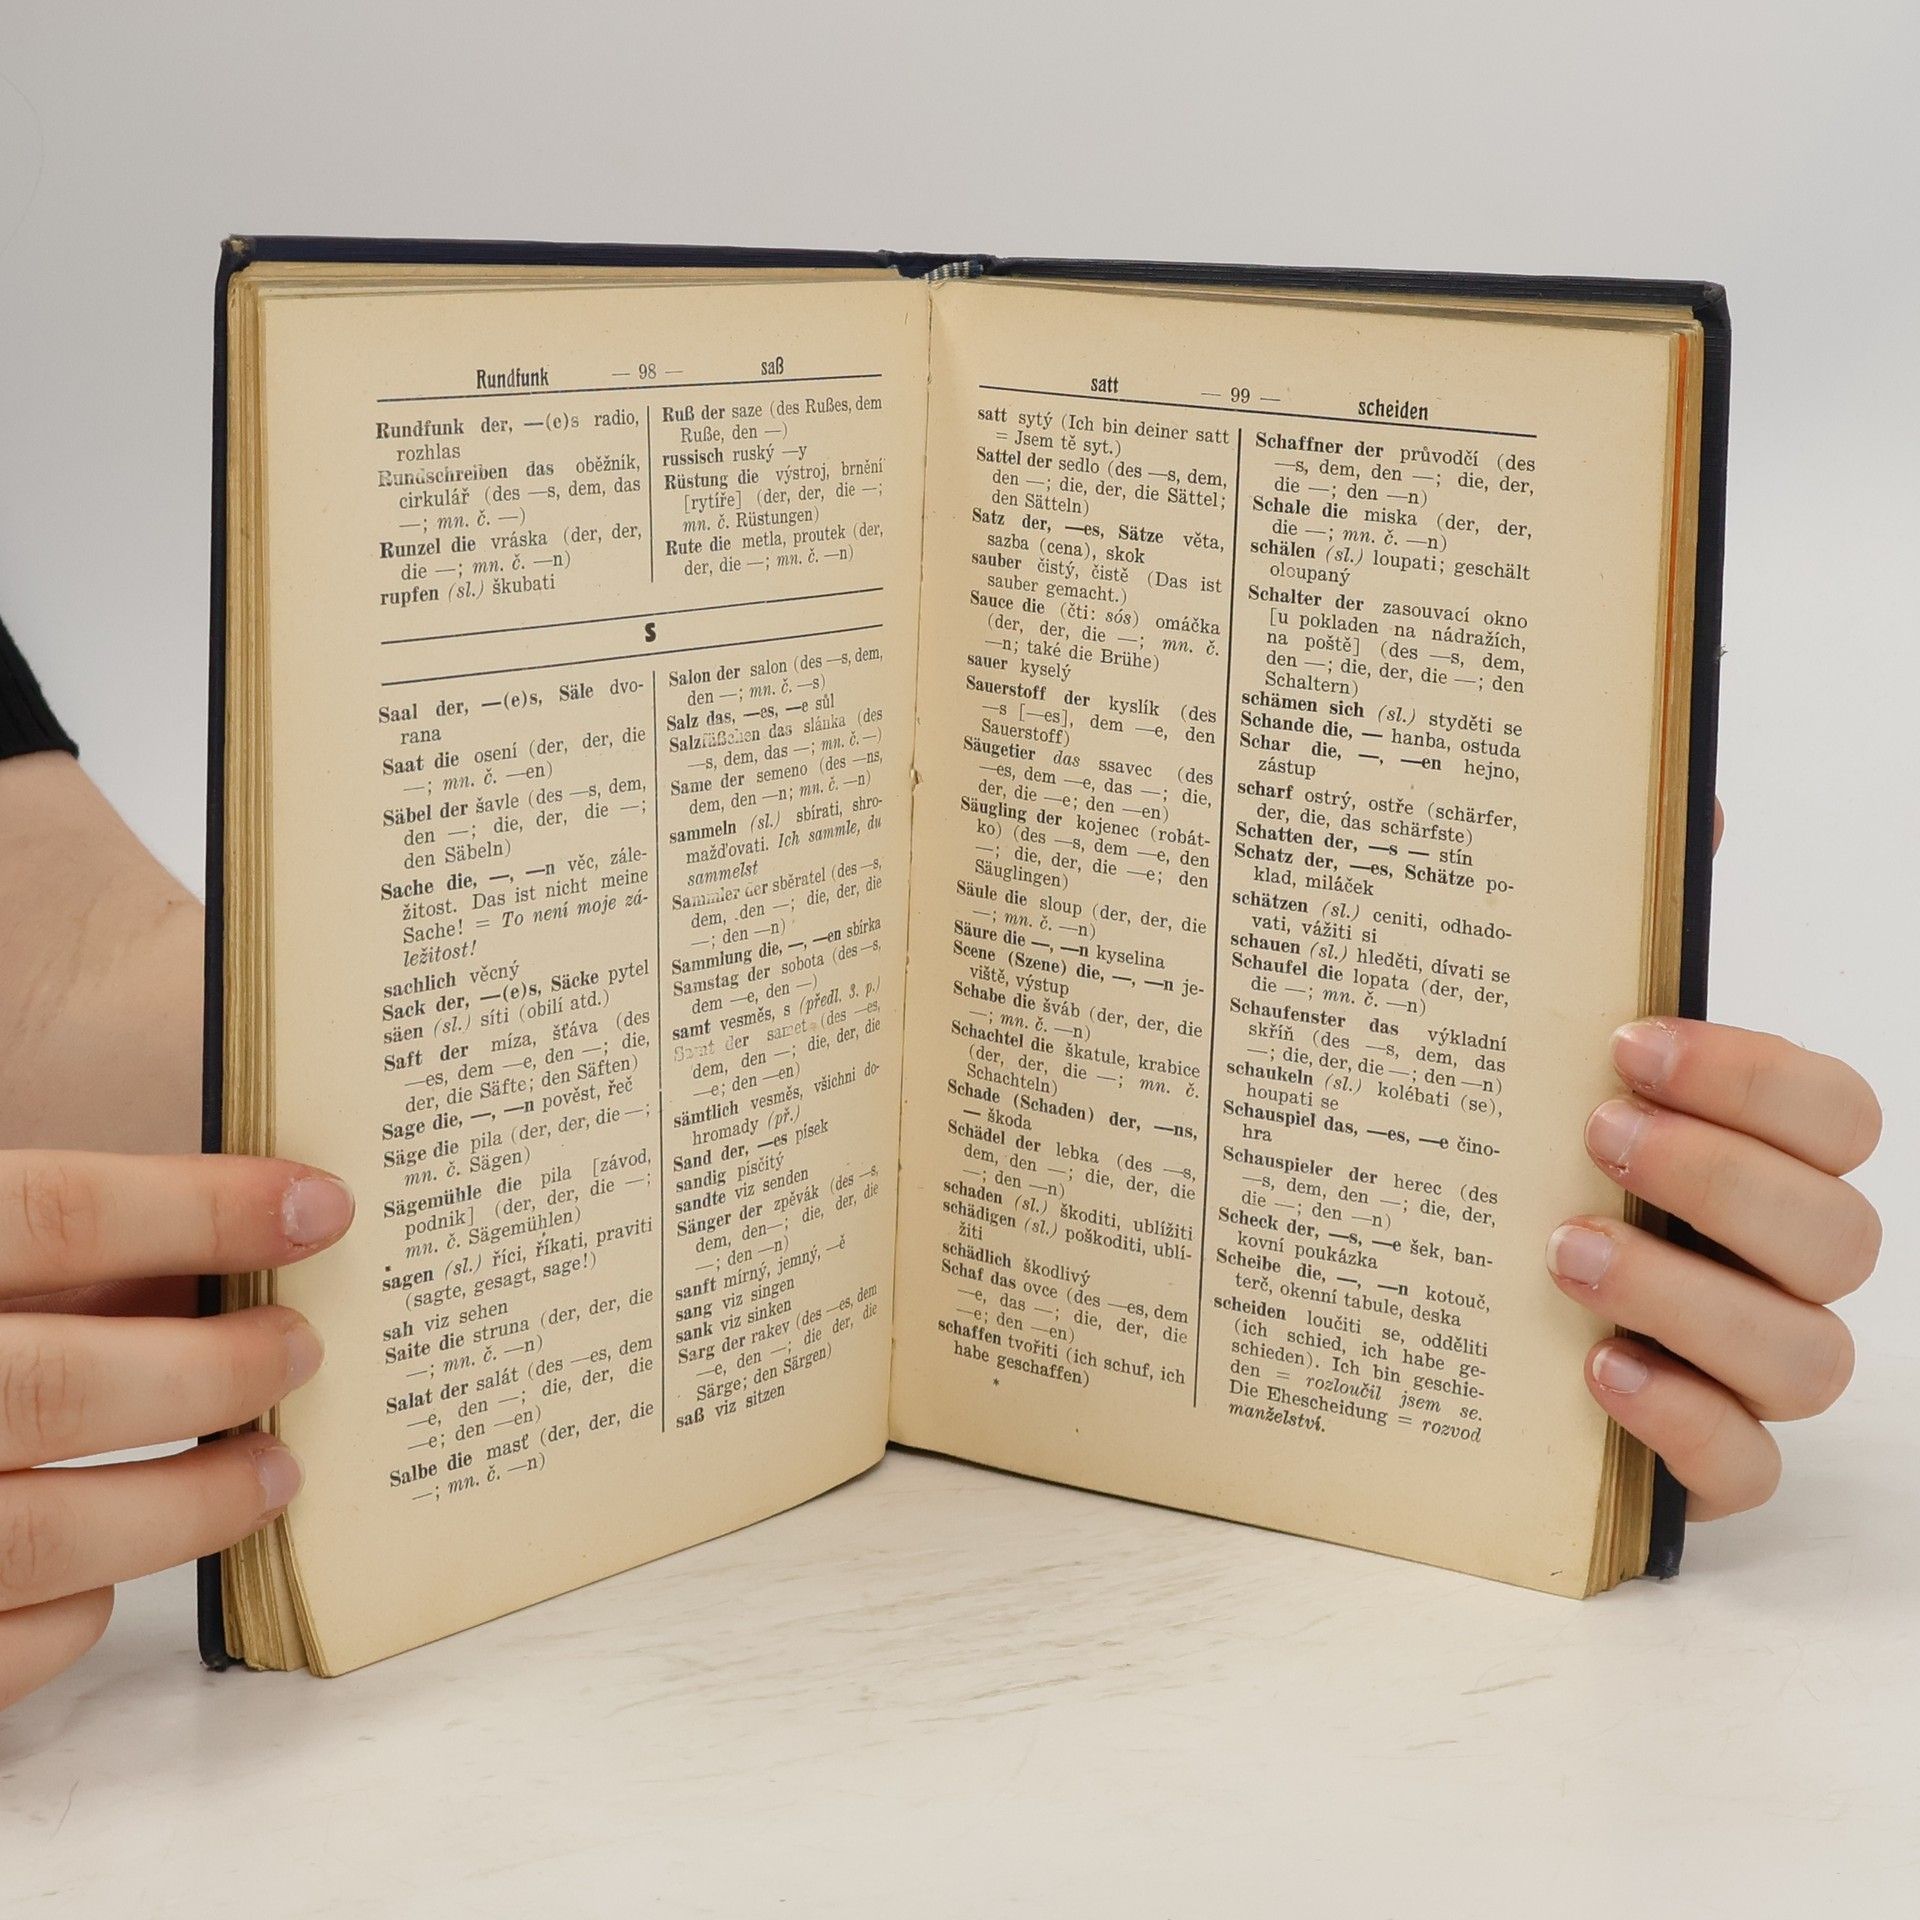 Rundfunk — 98 — saß
Rundfunk der, —(e)s radio,
rozhlas
Rundschreiben das oběžník,
cirkulář (des —s, dem, das
—; mn. č. —)
Runzel die vráska (der, der,
die —; mn. č. —n)
rupfen (sl.) škubati
Ruß der saze (des Rußes, dem
Ruße, den —)
russisch ruský —y
Rüstung die výstroj, brnění
[rytíře] (der, der, die —;
mn. č. Rüstungen)
Rute die metla, proutek (der,
der, die —; mn. č. —n)
S
Saal der, —(e)s, Säle dvo-
rana
Saat die osení (der, der, die
—; mn. č. —en)
Säbel der šavle (des —s, dem,
den —; die, der, die —;
den Säbeln)
Sache die, —, —n věc, zále-
žitost. Das ist nicht meine
Sache! = To není moje zá-
ležitost!
sachlich věcný
Sack der, —(e)s, Säcke pytel
säen (sl.) síti (obilí atd.)
Saft der míza, šťáva (des
—es, dem —e, den —; die,
der, die Säfte; den Säften)
Sage die, —, —n pověst, řeč
Säge die pila (der, der, die —;
mn. č. Sägen)
Sägemühle die pila [závod,
podnik] (der, der, die —;
mn. č. Sägemühlen)
sagen (sl.) říci, říkati, praviti
(sagte, gesagt, sage!)
sah viz sehen
Saite die struna (der, der, die
—; mn. č. —n)
Salat der salát (des —es, dem
—e, den —; die, der, die
—e; den —en)
Salbe die masť (der, der, die
—; mn. č. —n)
Salon der salon (des —s, dem,
den —; mn. č. —s)
Salz das, —es, —e sůl
Salzfäßchen das slánka (des
—s, dem, das —; mn. č. —)
Same der semeno (des —ns,
dem, den —n; mn. č. —n)
sammeln (sl.) sbírati, shro-
mažďovati. Ich sammle, du
sammelst
Sammler der sběratel (des —s,
dem, den —; die, der, die
—; den —n)
Sammlung die, —, —en sbírka
Samstag der sobota (des —s,
dem —e, den —)
samt vesměs, s (předl. 3. p.)
Samt der samet (des —es,
dem, den —; die, der, die
—e; den —en)
sämtlich vesměs, všichni do-
hromady (př.)
Sand der, —es písek
sandig písčitý
sandte viz senden
Sänger der zpěvák (des —s,
dem, den—; die, der, die
—; den —n)
sanft mírný, jemný, —ě
sang viz singen
sank viz sinken
Sarg der rakev (des —es, dem
—e, den —; die der, die
Särge; den Särgen)
saß viz sitzen
satt — 99 — scheiden
satt sytý (Ich bin deiner satt
= Jsem tě syt.)
Sattel der sedlo (des —s, dem,
den —; die, der, die Sättel;
den Sätteln)
Satz der, —es, Sätze věta,
sazba (cena), skok
sauber čistý, čistě (Das ist
sauber gemacht.)
Sauce die (čti: sós) omáčka
(der, der, die —; mn. č.
—n; také die Brühe)
sauer kyselý
Sauerstoff der kyslík (des
—s [—es], dem —e, den
Sauerstoff)
Säugetier das ssavec (des
—es, dem —e, das —; die,
der, die —e; den —en)
Säugling der kojenec (robát-
ko) (des —s, dem —e, den
—; die, der, die —e; den
Säuglingen)
Säule die sloup (der, der, die
—; mn. č. —n)
Säure die —, —n kyselina
Scene (Szene) die, —, —n je-
viště, výstup
Schabe die šváb (der, der, die
—; mn. č. —n)
Schachtel die škatule, krabice
(der, der, die —; mn. č.
Schachteln)
Schade (Schaden) der, —ns,
— škoda
Schädel der lebka (des —s,
dem, den —; die, der, die
—; den —n)
schaden (sl.) škoditi, ublížiti
schädigen (sl.) poškoditi, ublí-
žiti
schädlich škodlivý
Schaf das ovce (des —es, dem
—e, das —; die, der, die
—e; den —en)
schaffen tvořiti (ich schuf, ich
habe geschaffen)
*
Schaffner der průvodčí (des
—s, dem, den —; die, der,
die —; den —n)
Schale die miska (der, der,
die —; mn. č. —n)
schälen (sl.) loupati; geschält
oloupaný
Schalter der zasouvací okno
[u pokladen na nádražích,
na poště] (des —s, dem,
den —; die, der, die —; den
Schaltern)
schämen sich (sl.) styděti se
Schande die, — hanba, ostuda
Schar die, —, —en hejno,
zástup
scharf ostrý, ostře (schärfer,
der, die, das schärfste)
Schatten der, —s — stín
Schatz der, —es, Schätze po-
klad, miláček
schätzen (sl.) ceniti, odhado-
vati, vážiti si
schauen (sl.) hleděti, dívati se
Schaufel die lopata (der, der,
die —; mn. č. —n)
Schaufenster das výkladní
skříň (des —s, dem, das
—; die, der, die —; den —n)
schaukeln (sl.) kolébati (se),
houpati se
Schauspiel das, —es, —e čino-
hra
Schauspieler der herec (des
—s, dem, den —; die, der,
die —; den —n)
Scheck der, —s, —e šek, ban-
kovní poukázka
Scheibe die, —, —n kotouč,
terč, okenní tabule, deska
scheiden loučiti se, odděliti
(ich schied, ich habe ge-
schieden). Ich bin geschie-
den = rozloučil jsem se.
Die Ehescheidung = rozvod
manželství.